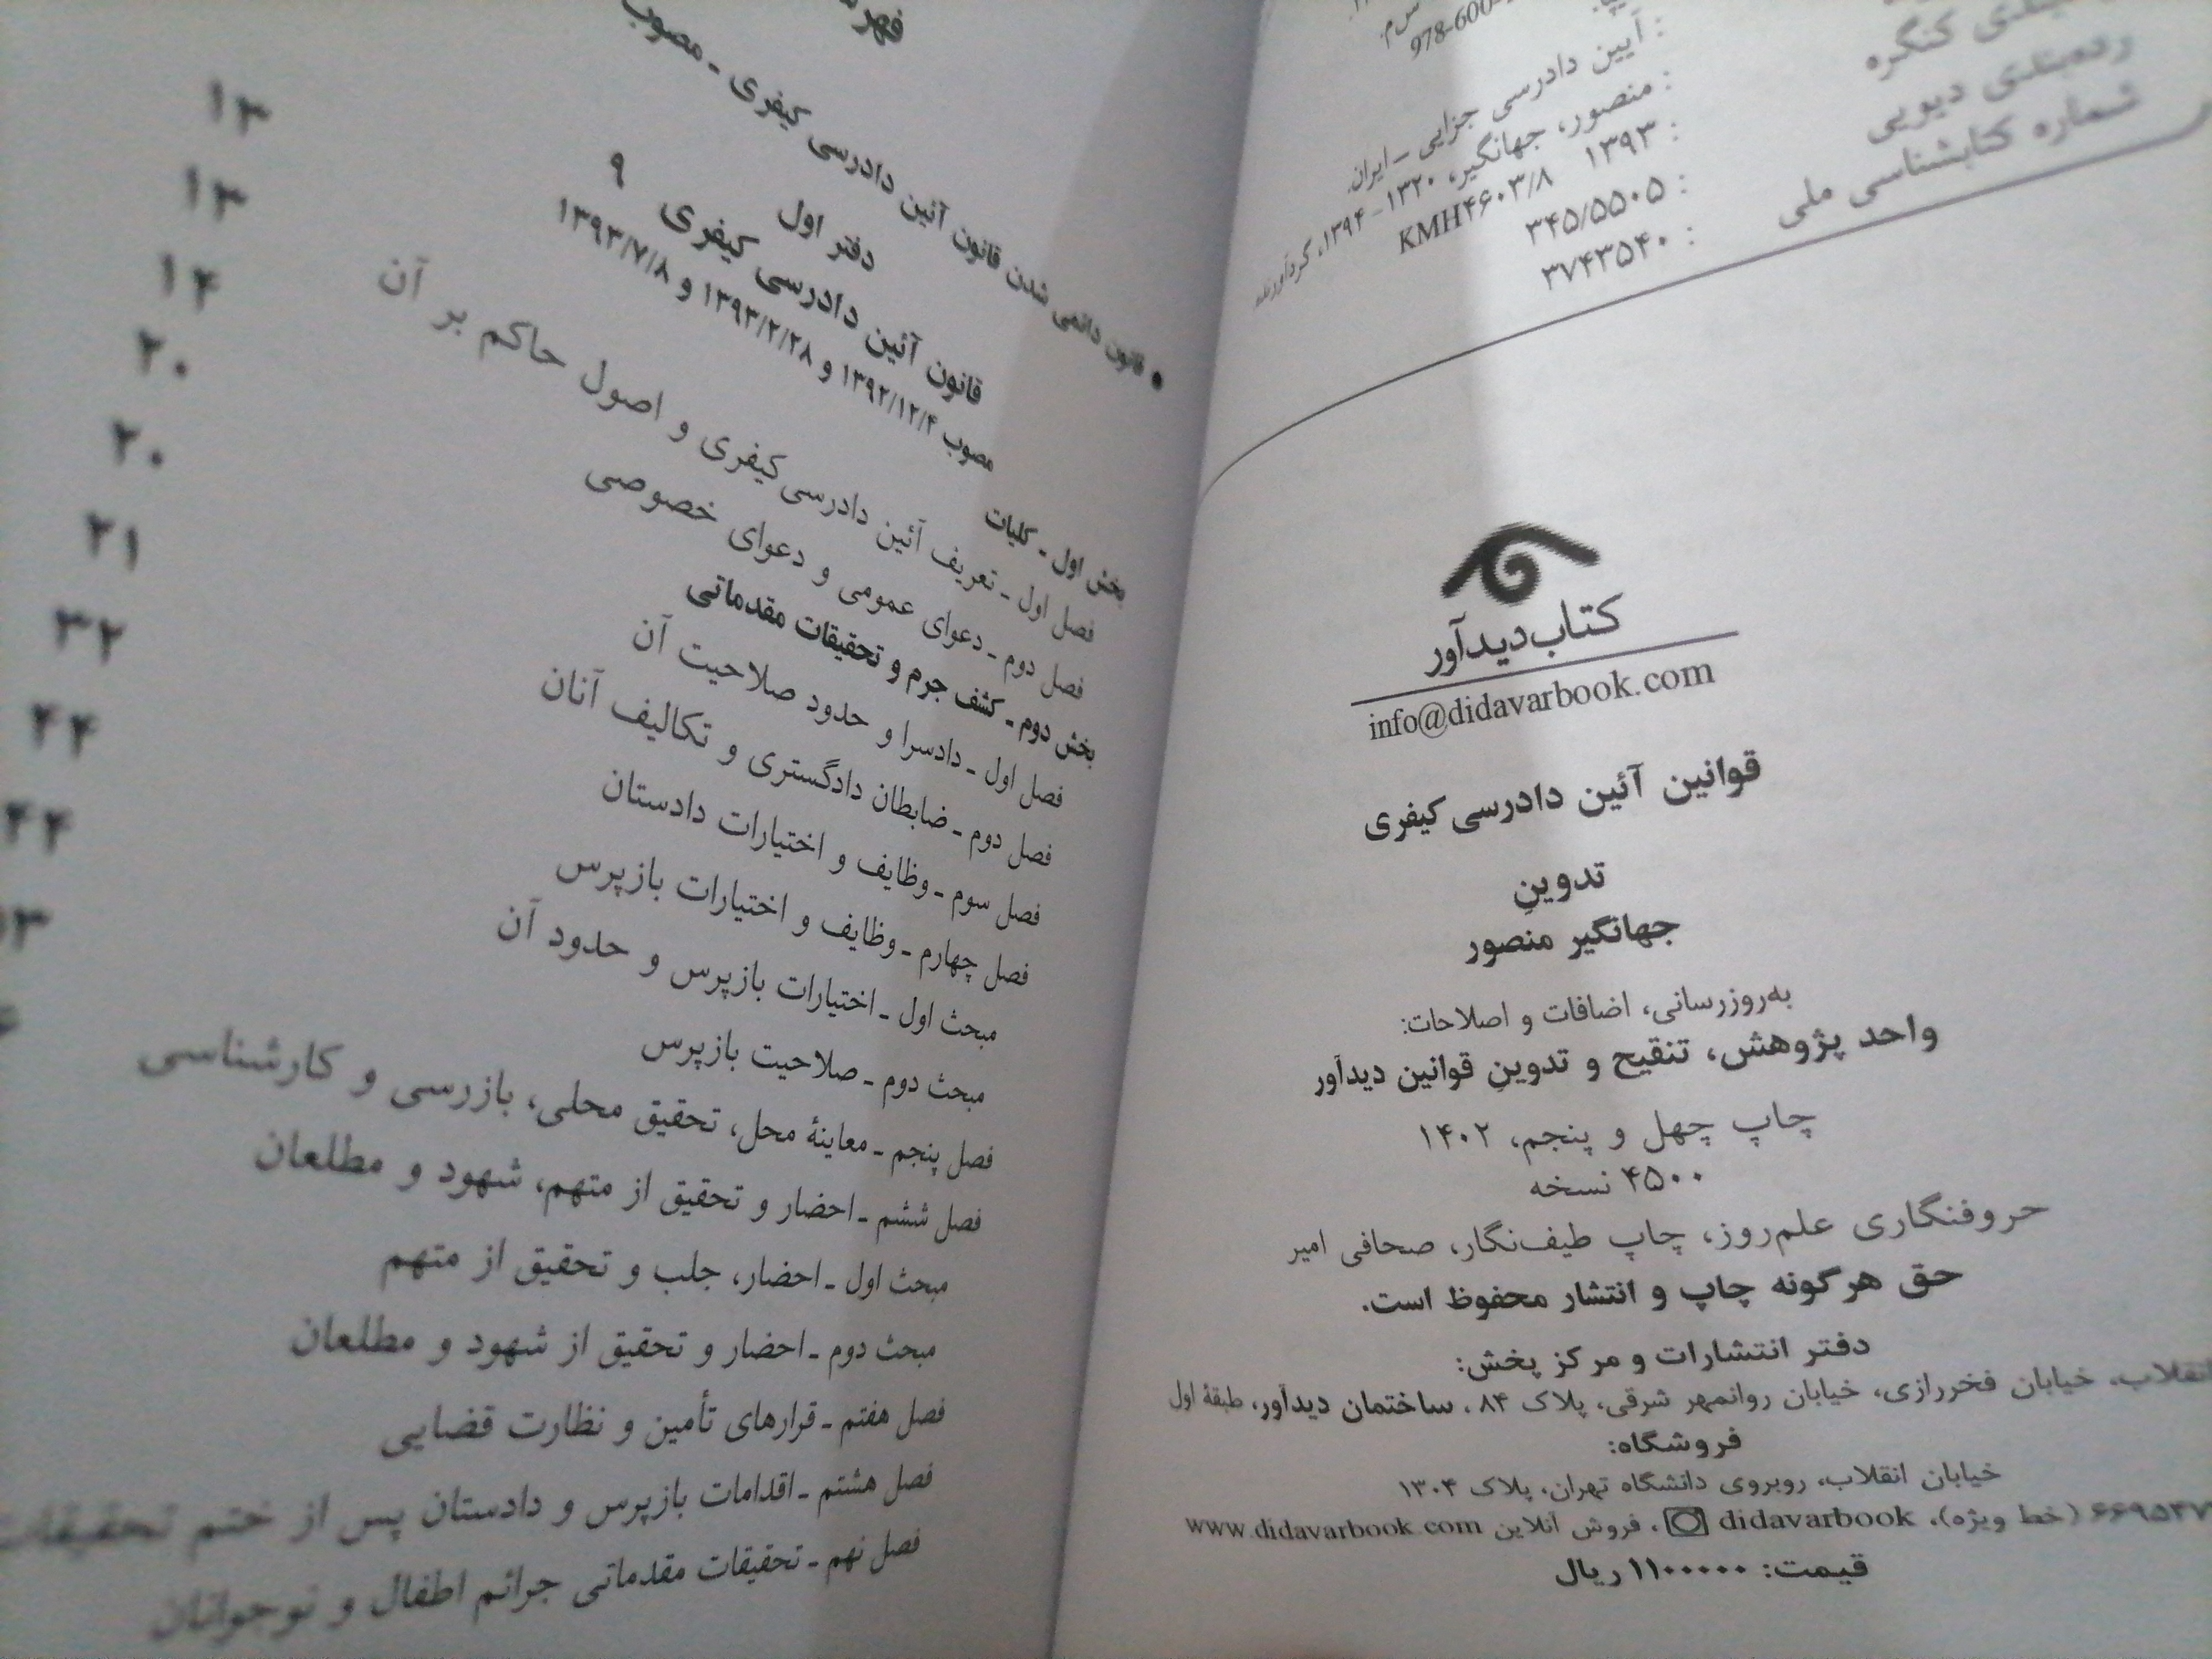 978-600-
: آیین دادرسی جزایی ـ ایران.
: منصور، جهانگیر، ۱۳۲۰ - ۱۳۹۴، گردآورنده
کنگره : ۱۳۹۳ KMH۴۶۰۳/۸
رده‌بندی دیویی : ۳۴۵/۵۵۰۵
شماره کتابشناسی ملی : ۳۷۴۳۵۴۰
کتاب دیدآور
info@didavarbook.com
قوانین آئین دادرسی کیفری
تدوینِ
جهانگیر منصور
به‌روزرسانی، اضافات و اصلاحات:
واحد پژوهش، تنقیح و تدوینِ قوانین دیدآور
چاپ چهل و پنجم، ۱۴۰۲
۴۵۰۰ نسخه
حروفنگاری علم‌روز، چاپ طیف‌نگار، صحافی امیر
حق هرگونه چاپ و انتشار محفوظ است.
دفتر انتشارات و مرکز پخش:
انقلاب، خیابان فخررازی، خیابان روانمهر شرقی، پلاک ۸۴، ساختمان دیدآور، طبقهٔ اول
فروشگاه:
خیابان انقلاب، روبروی دانشگاه تهران، پلاک ۱۳۰۴
(خط ویژه)، didavarbook، فروش آنلاین www.didavarbook.com
قیمت: ۱۱۰۰۰۰۰ ریال
• قانون دائمی شدن قانون آئین دادرسی کیفری ـ مصوب
دفتر اول
قانون آئین دادرسی کیفری ۹
مصوب ۱۳۹۲/۱۲/۴ و ۱۳۹۳/۲/۲۸ و ۱۳۹۳/۷/۸
بخش اول ـ کلیات ۱۳
فصل اول ـ تعریف آئین دادرسی کیفری و اصول حاکم بر آن ۱۳
فصل دوم ـ دعوای عمومی و دعوای خصوصی ۱۴
بخش دوم ـ کشف جرم و تحقیقات مقدماتی ۲۰
فصل اول ـ دادسرا و حدود صلاحیت آن ۲۰
فصل دوم ـ ضابطان دادگستری و تکالیف آنان ۲۱
فصل سوم ـ وظایف و اختیارات دادستان ۳۲
فصل چهارم ـ وظایف و اختیارات بازپرس ۴۴
مبحث اول ـ اختیارات بازپرس و حدود آن ۴۴
مبحث دوم ـ صلاحیت بازپرس
فصل پنجم ـ معاینهٔ محل، تحقیق محلی، بازرسی و کارشناسی
فصل ششم ـ احضار و تحقیق از متهم، شهود و مطلعان
مبحث اول ـ احضار، جلب و تحقیق از متهم
مبحث دوم ـ احضار و تحقیق از شهود و مطلعان
فصل هفتم ـ قرارهای تأمین و نظارت قضایی
فصل هشتم ـ اقدامات بازپرس و دادستان پس از ختم تحقیقات
فصل نهم ـ تحقیقات مقدماتی جرائم اطفال و نوجوانان